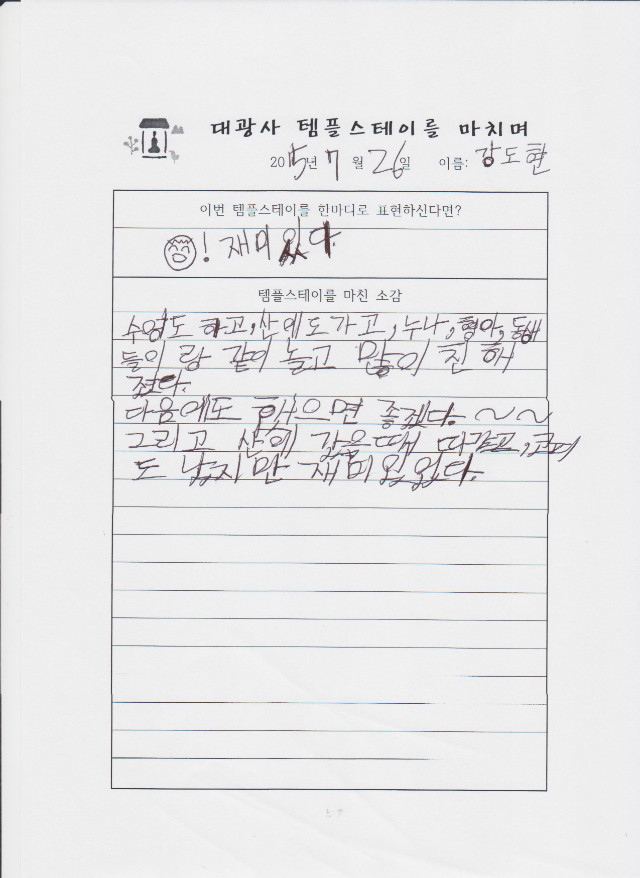 대광사 템플스테이를 마치며
2015년 7 월 26일 이름: 강도현
이번 템플스테이를 한마디로 표현하신다면?
! 재미있다
템플스테이를 마친 소감
수영도 하고, 산에도가고, 누나, 형아, 동생
들이 랑 같이 놀고 많이 친 해
졌다.
다음에도 했으면 좋겠다. ~~
그리고 산에 갔을때 따갑고, 코피
도 났지만 재미있었다.